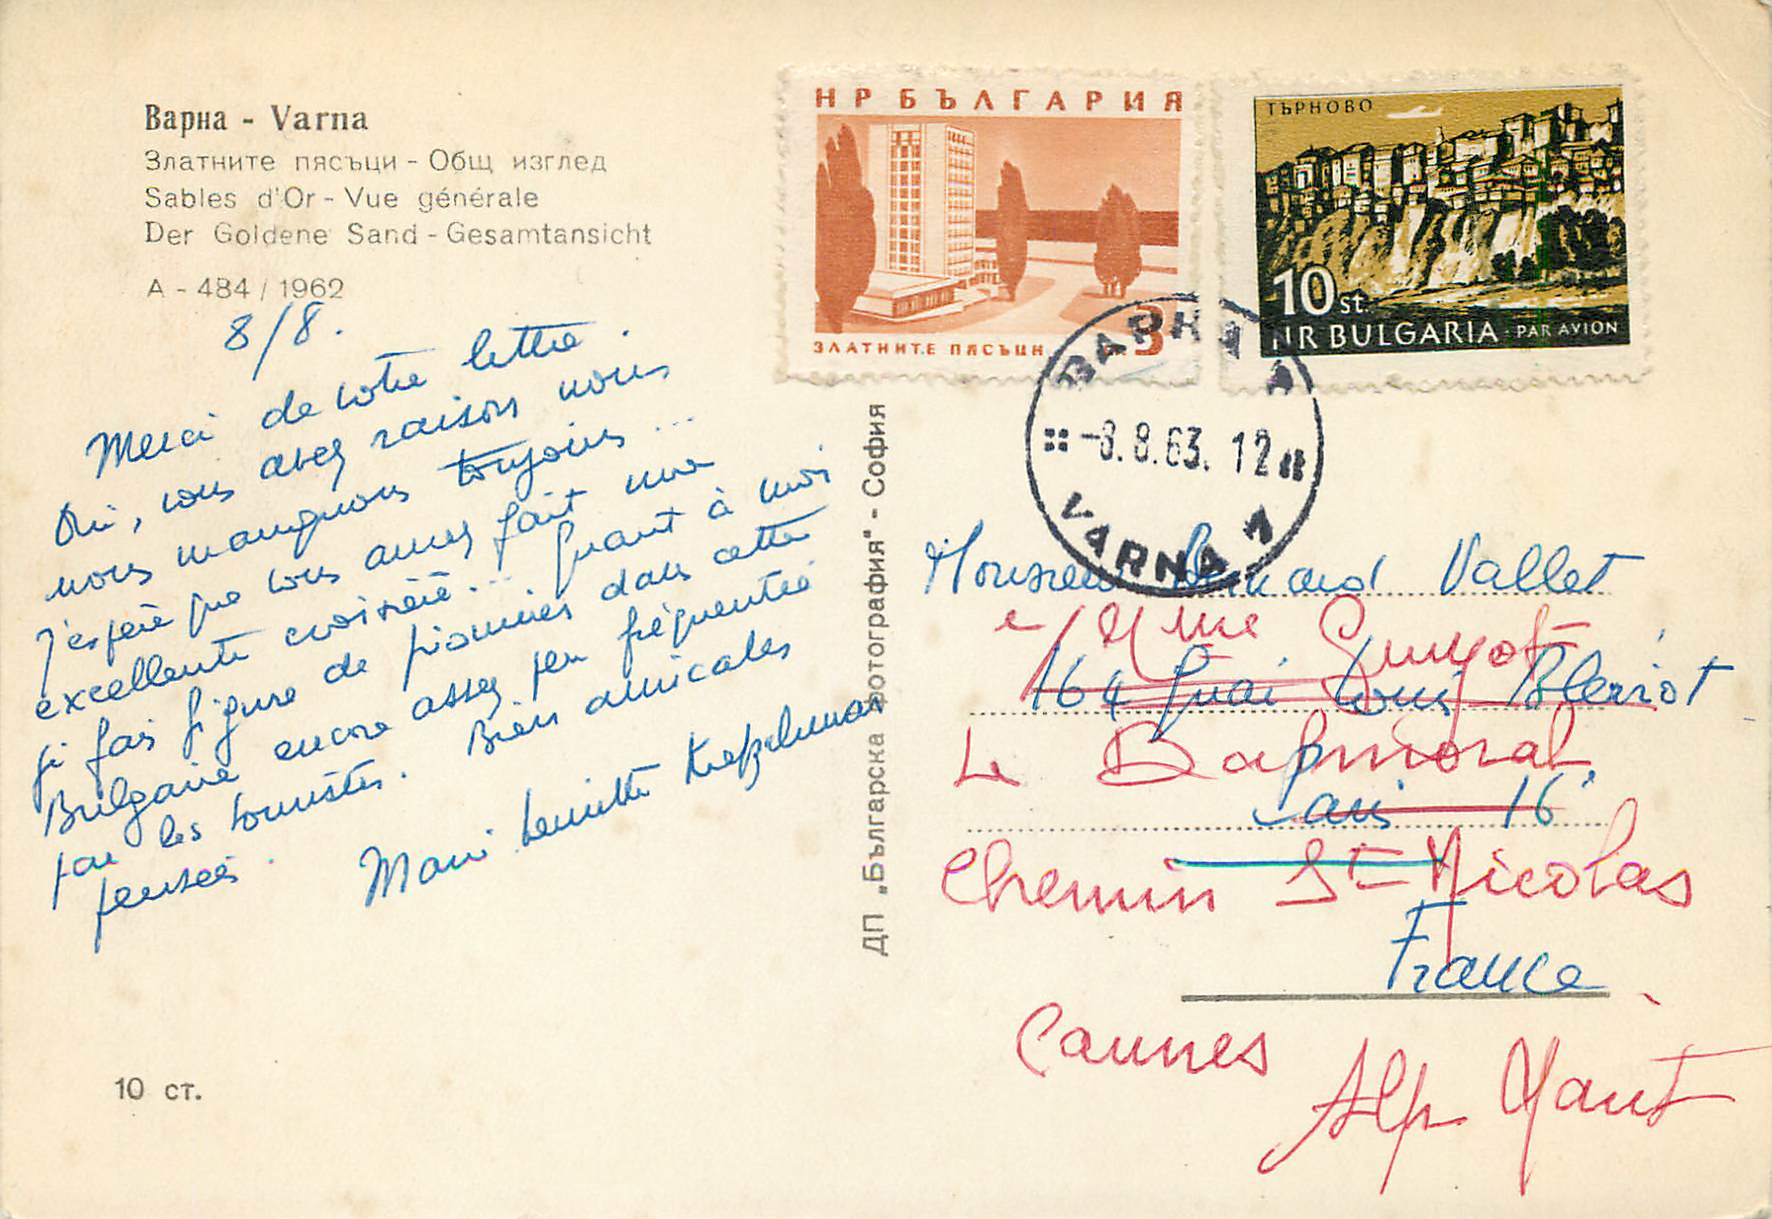 Варна - Varna
Златните пясъци - Общ изглед
Sables d'Or - Vue générale
Der Goldene Sand - Gesamtansicht
А - 484 / 1962
8/8.
Merci de votre lettre.
Oui, vous avez raison nous
nous manquons toujours...
J'espère que vous avez fait une
excellente croisière... Quant à moi
je fais figure de pionnier dans cette
Bulgarie encore assez peu fréquentée
par les touristes. Bien amicales
pensées.
10 ст.
ДП „Българска фотография" - София
НР БЪЛГАРИЯ
ЗЛАТНИТЕ ПЯСЪЦИ
3
ТЪРНОВО
10 st.
NR BULGARIA - PAR AVION
ВАРНА
-8.8.63. 12
VARNA
Monsieur Bernard Vallet
Mme Guyot
164 Quai Louis Blériot
Le
Paris 16
Chemin St Nicolas
France
Cannes
Alp Marit